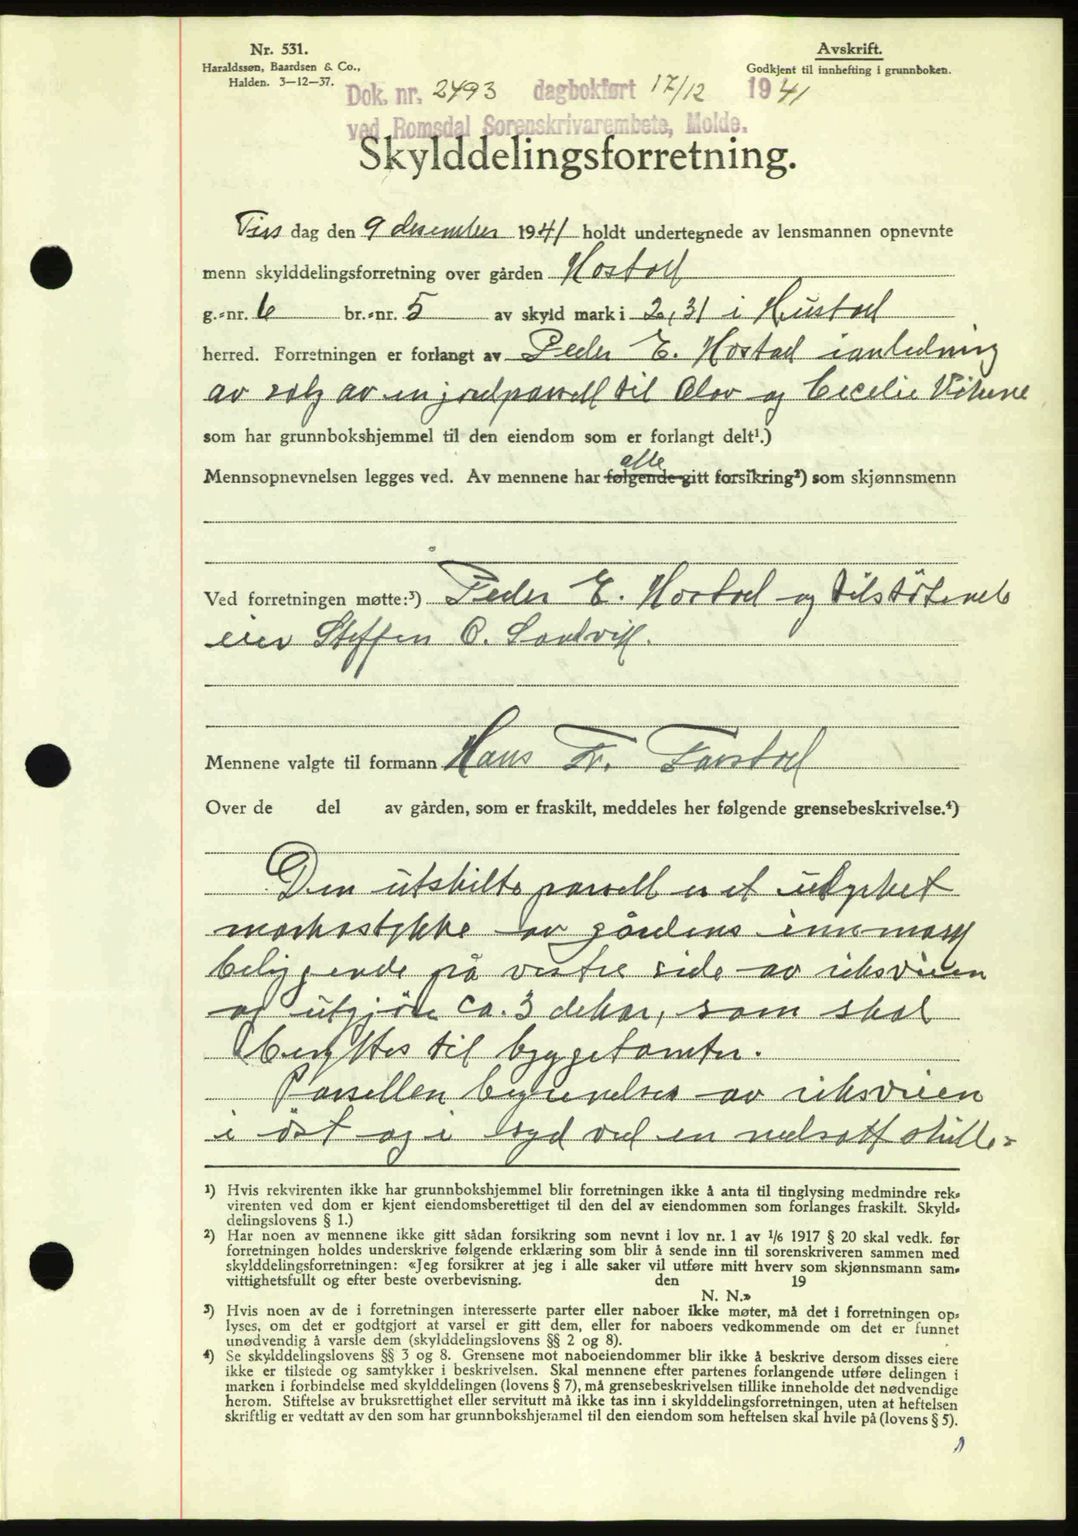 Nr. 531.
Haraldssøn, Baardsen & Co.,
Halden. 3-12-37.
Avskrift.
Godkjent til innhefting i grunnboken.
Dok. nr. 2493 dagbokført 17/12 1941
ved Romsdal Sorenskrivarembete, Molde.
Skylddelingsforretning.
Tirs dag den 9 desember 1941 holdt undertegnede av lensmannen opnevnte
menn skylddelingsforretning over gården Hostad
g.-nr. 6 br.-nr. 5 av skyld mark i 2,31 i Hustad
herred. Forretningen er forlangt av Peder E. Hostad i anledning
av salg av en jordparsell til Olav og Cecilie Vikene
som har grunnbokshjemmel til den eiendom som er forlangt delt¹.)
Mennsopnevnelsen legges ved. Av mennene har alle følgende gitt forsikring²) som skjønnsmenn
Ved forretningen møtte:³) Peder E. Hostad og tilstøtende
eier Steffen O. Sandvik.
Mennene valgte til formann Hans Fr. Farstad
Over de del av gården, som er fraskilt, meddeles her følgende grensebeskrivelse.⁴)
Den utskilte parsell er et udyrket
markastykke av gårdens innmark
beliggende på vestre side av riksveien
og utgjør ca. 3 dekar, som skal
benyttes til byggetomter.
Parsellen begrenses av riksveien
i øst og i syd ved en nedsatt skille-
¹) Hvis rekvirenten ikke har grunnbokshjemmel blir forretningen ikke å anta til tinglysing medmindre rek-
virenten ved dom er kjent eiendomsberettiget til den del av eiendommen som forlanges fraskilt. Skyld-
delingslovens § 1.)
²) Har noen av mennene ikke gitt sådan forsikring som nevnt i lov nr. 1 av 1/6 1917 § 20 skal vedk. før
forretningen holdes underskrive følgende erklæring som blir å sende inn til sorenskriveren sammen med
skylddelingsforretningen: «Jeg forsikrer at jeg i alle saker vil utføre mitt hverv som skjønnsmann sam-
vittighetsfullt og efter beste overbevisning. den 19
N. N.»
³) Hvis noen av de i forretningen interesserte parter eller naboer ikke møter, må det i forretningen op-
lyses, om det er godtgjort at varsel er gitt dem, eller for naboers vedkommende om det er funnet
unødvendig å varsle dem (skylddelingslovens §§ 2 og 8).
⁴) Se skylddelingslovens §§ 3 og 8. Grensene mot naboeiendommer blir ikke å beskrive dersom disses eiere
ikke er tilstede og samtykker i beskrivelsen. Skal mennene efter partenes forlangende utføre delingen i
marken i forbindelse med skylddelingen (lovens § 7), må grensebeskrivelsen tillike inneholde det nødvendige
herom. Stiftelse av bruksrettighet eller servitutt må ikke tas inn i skylddelingsforretningen, uten at heftelsen
skriftlig er vedtatt av den som har grunnbokshjemmel til den eiendom som heftelsen skal hvile på (lovens § 5).